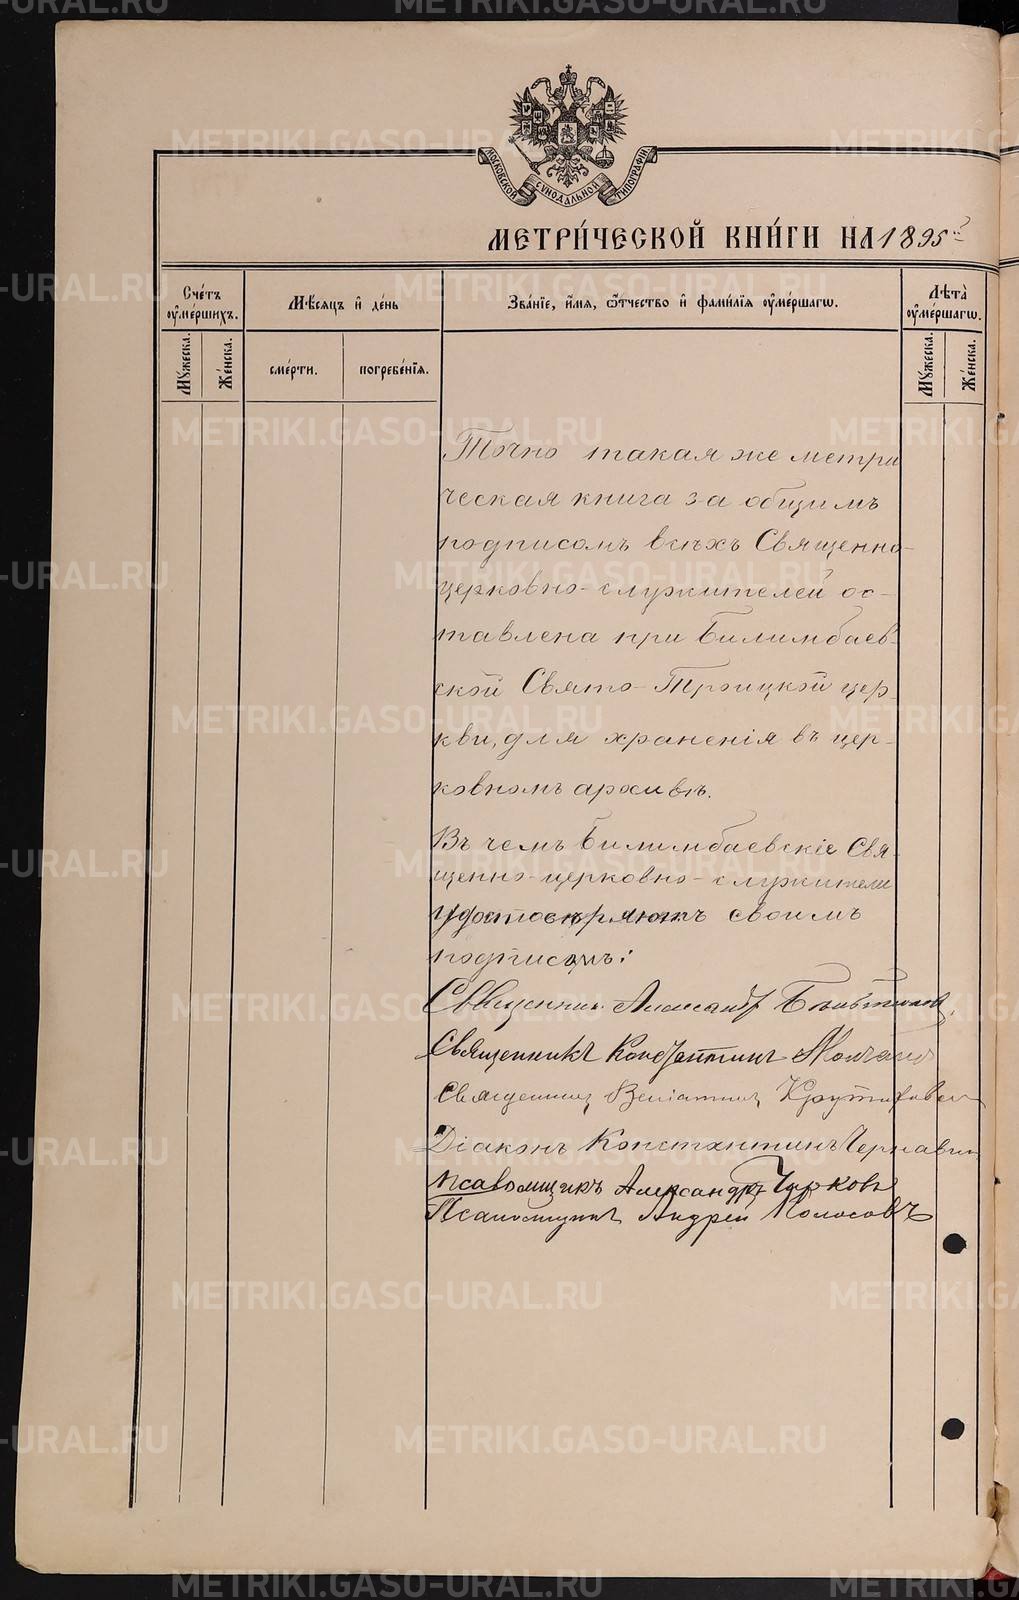 METRIKI.GASO-URAL.RU
МОСКОВСКОЙ СУНОДАЛЬНОЙ ТИПОГРАФІИ.
МЕТРИ́ЧЕСКОЙ КНИ́ГИ НА 1895
Сче́тъ ᲂу҆ме́ршихъ.
Мѣ́сяцъ и҆ де́нь
Зва́нїе, и҆́мя, ѻ҆́тчество и҆ фами́лїя ᲂу҆ме́ршагѡ.
Лѣта̀ ᲂу҆ме́ршагѡ.
Му́жеска.
Же́нска.
сме́рти.
погребе́нїя.
Му́жеска.
Же́нска.
Точно такая же метри
ческая книга за общимъ
подписомъ всѣхъ Священно-
церковно-служителей ос-
тавлена при Билимбаев-
ской Свято-Троицкой цер-
кви, для храненія въ цер-
ковномъ архивѣ.
Въ чемъ Билимбаевскіе Свя-
щенно-церковно-служители
удостовѣряютъ своимъ
подписомъ:
Священникъ Александръ
Священникъ Константинъ
Священникъ Веніаминъ
Діаконъ Константинъ Чернавин
Псаломщикъ Александръ Чирковъ
Псаломщикъ Андрей Колосовъ